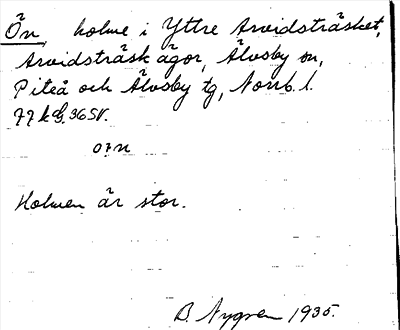 Ön, holme i Yttre Arvidsträsket,
Arvidsträsk ägor, Älvsby sn,
Piteå och Älvsby tg, Norrb. l.
77 kg. 36 SV.
Holmen är stor.
B. Nygren 1935.